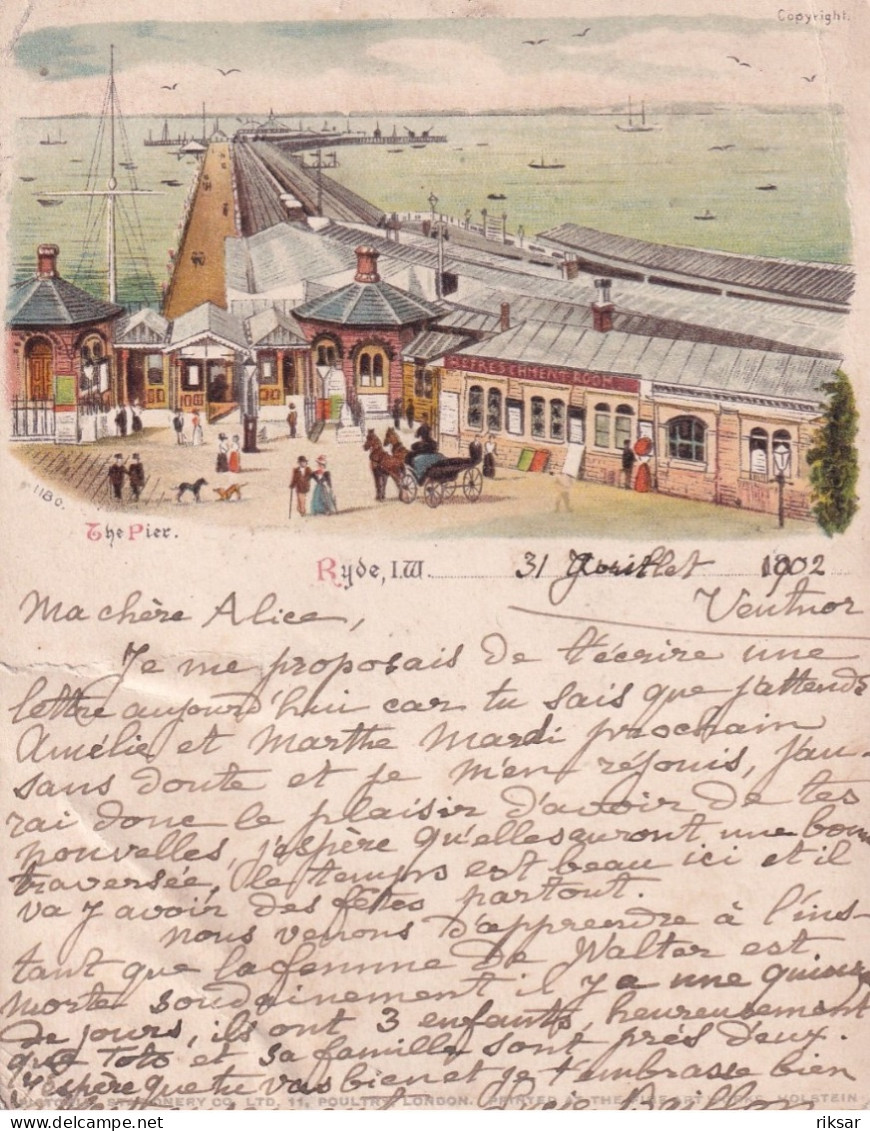 Copyright.
REFRESHMENT ROOM
1180.
The Pier.
Ryde, I.W. 31 Juillet 1902
Ma chère Alice, Ventnor
Je me proposais de t'écrire une
lettre aujourd'hui car tu sais que j'attends
Amélie et Marthe Mardi prochain
sans doute et je m'en réjouis, j'au-
rai donc le plaisir d'avoir de tes
nouvelles, j'espère qu'elles auront une bonne
traversée, le temps est beau ici et il
va y avoir des fêtes partout.
nous venons d'apprendre à l'ins-
tant que la femme de Walter est
morte soudainement il y a une quinze
de jours, ils ont 3 enfants, heureusement
que Toto et sa famille sont près d'eux.
J'espère que tu vas bien et je t'embrasse bien
STATIONERY CO. LTD. 11, POULTRY, LONDON. PRINTED AT THE FINE ART WORKS, HOLSTEIN
delcampe.net
riksar